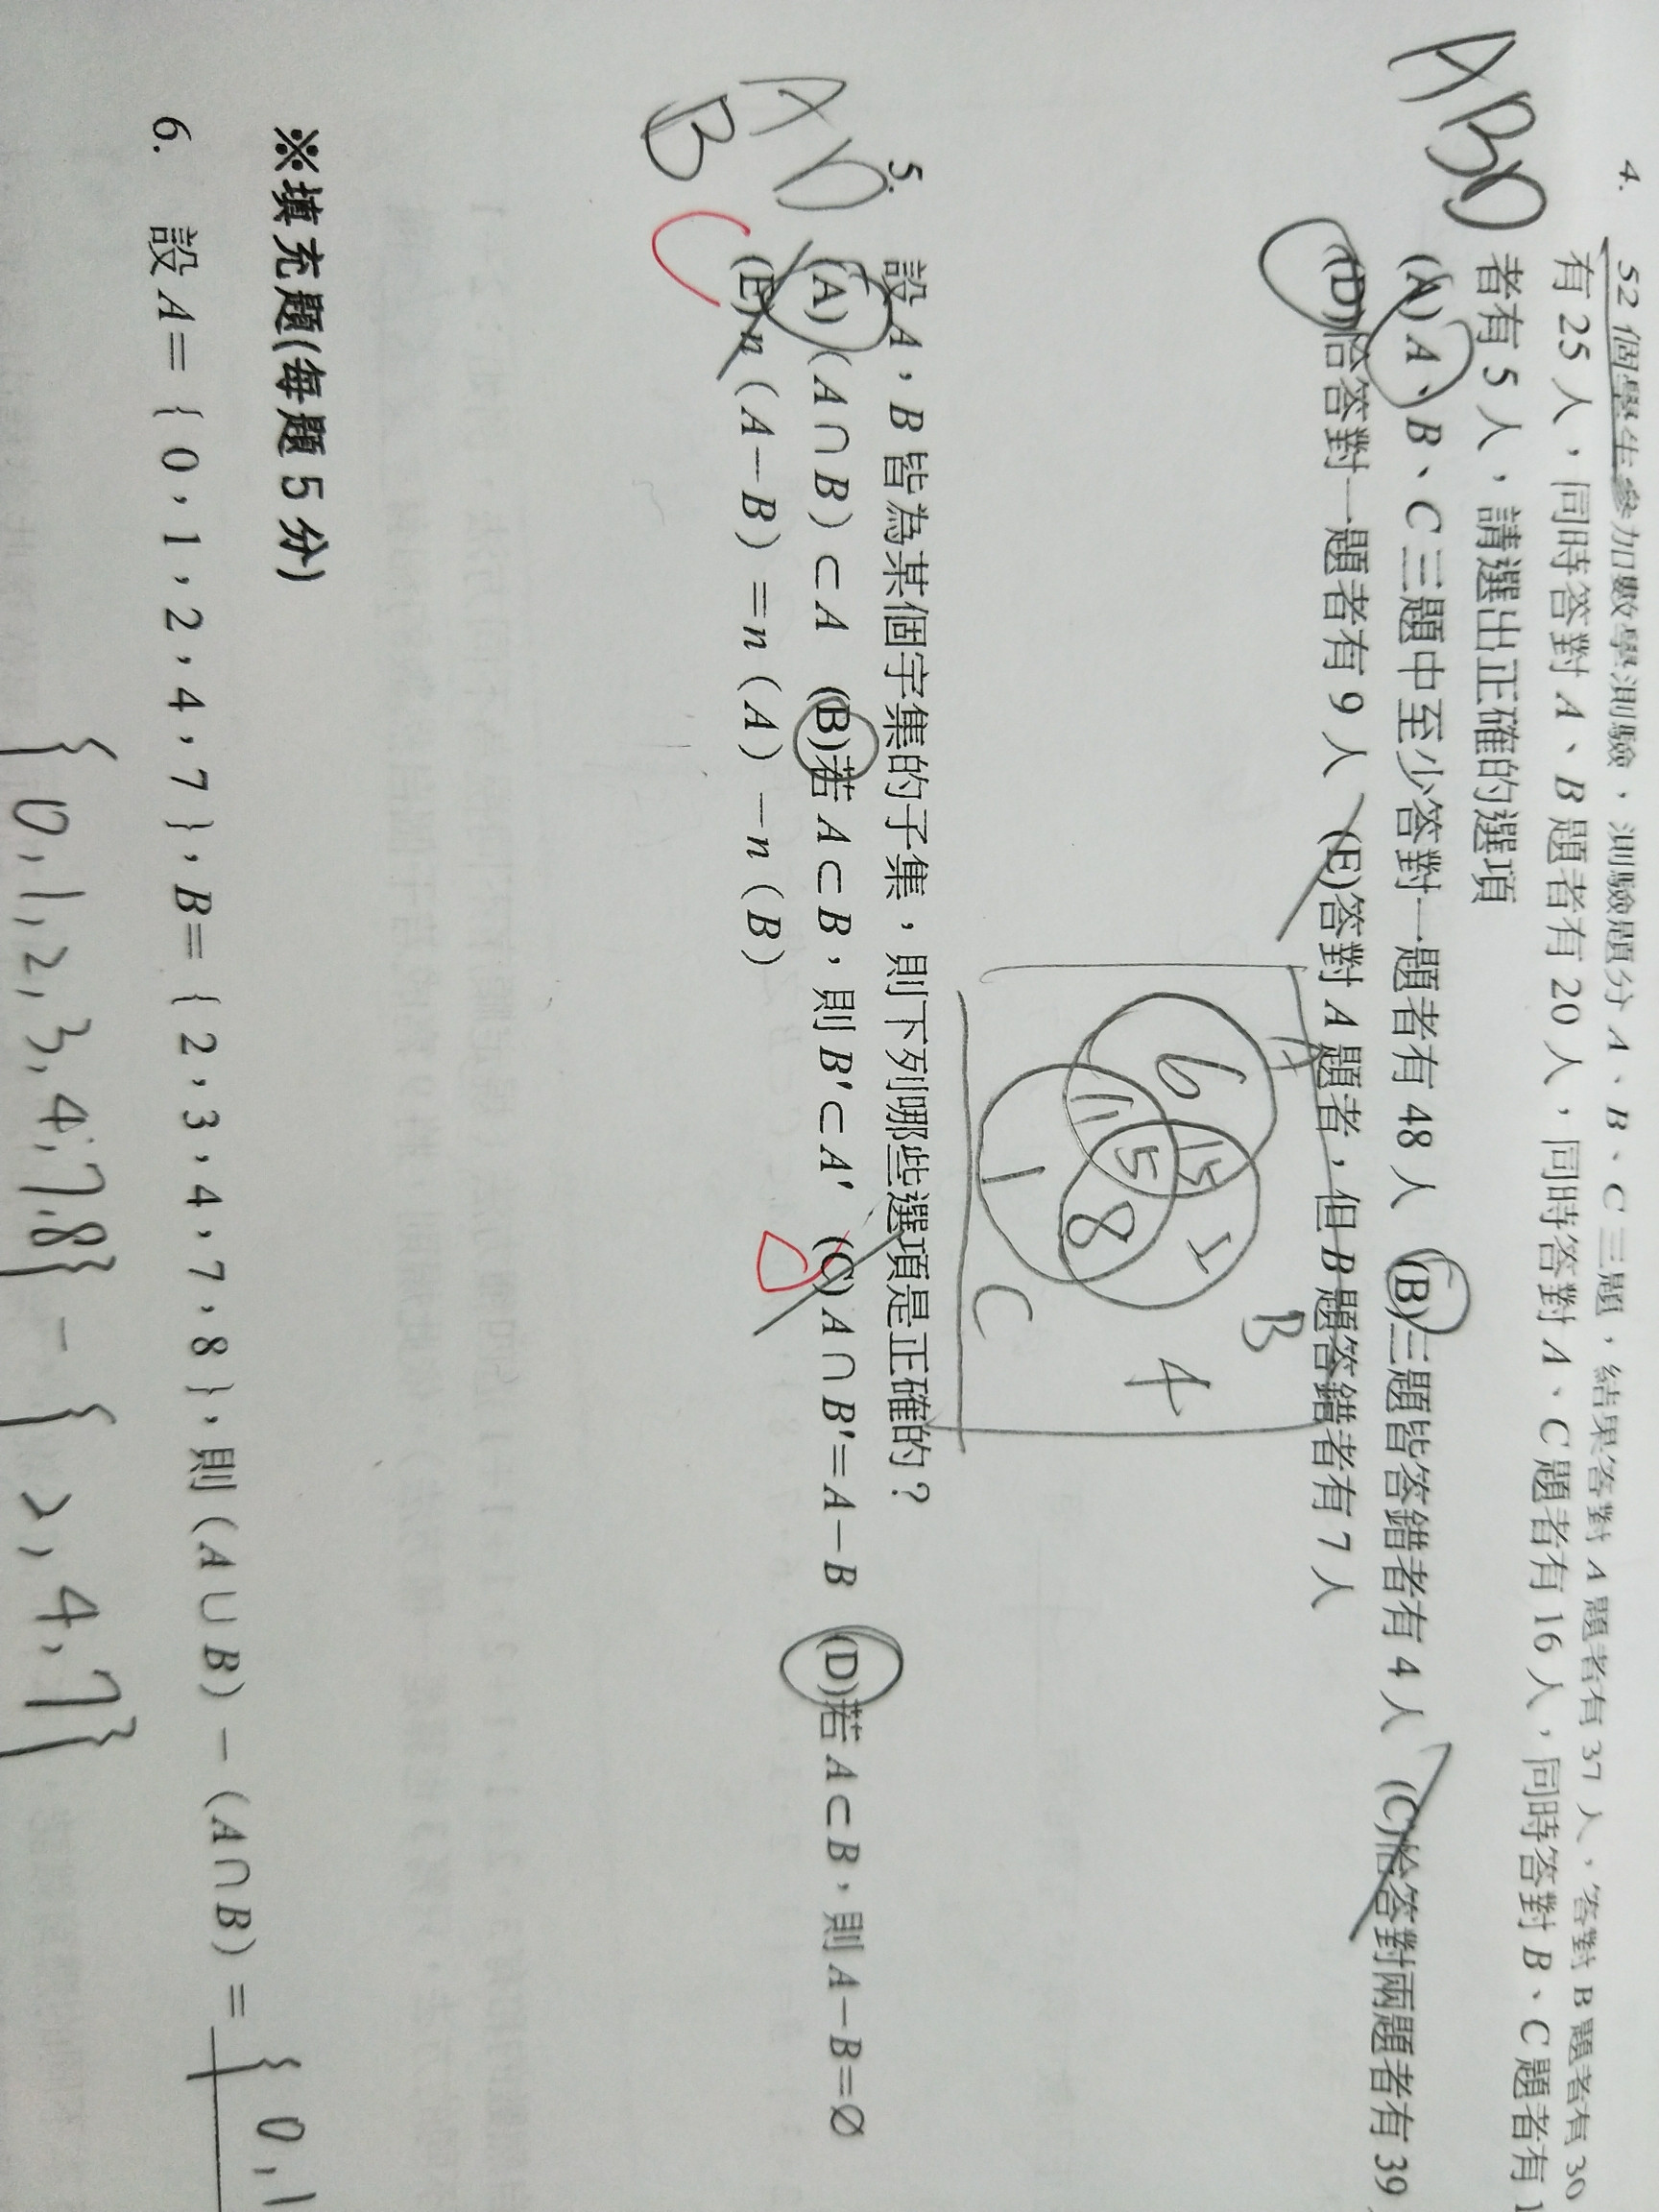 4. 52 個學生參加數學測驗，測驗題分 A、B、C 三題，結果答對 A 題者有 37 人，答對 B 題者有 30
有 25 人，同時答對 A、B 題者有 20 人，同時答對 A、C 題者有 16 人，同時答對 B、C 題者有 1
者有 5 人，請選出正確的選項
ABD
(A) A、B、C 三題中至少答對一題者有 48 人 (B)三題皆答錯者有 4 人 (C)恰答對兩題者有 39
(D)恰答對一題者有 9 人 (E)答對 A 題者，但 B 題答錯者有 7 人
A
B
6 15 2
11 5 8 4
1
C
5. 設 A，B 皆為某個宇集的子集，則下列哪些選項是正確的？
AD
B
C
(A) (A∩B)⊂A (B)若 A⊂B，則 B'⊂A' (C) A∩B'=A−B (D)若 A⊂B，則 A−B=∅
(E) n (A−B) =n (A) −n (B)
※填充題(每題 5 分)
6. 設 A= { 0，1，2，4，7 }，B= { 2，3，4，7，8 }，則 (A∪B) − (A∩B) = { 0,1
{ 0,1,2,3,4,7,8} - { 2,4,7}